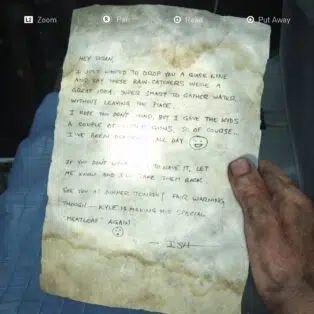 L2 Zoom X Pan Read Put Away
HEY SUSAN,
I JUST WANTED TO DROP YOU A QUICK LINE
AND SAY THESE RAIN-CATCHERS WERE A
GREAT IDEA. SUPER SMART TO GATHER WATER
WITHOUT LEAVING THE PLACE.
I HOPE YOU DON'T MIND, BUT I GAVE THE KIDS
A COUPLE OF GUNS. SO, OF COURSE,
I'VE BEEN ALL DAY
IF YOU DON'T WANT TO HAVE IT, LET
ME KNOW AND I'LL TAKE THEM BACK.
SEE YOU AT DINNER TONIGHT! FAIR WARNING
THOUGH — KYLE IS MAKING HIS SPECIAL
"MEATLOAF" AGAIN!
— ISH